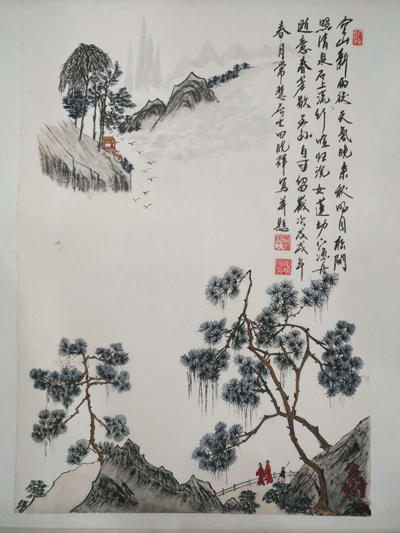 空山新雨後天氣晚來秋明月松間
照清泉石上流竹喧归浣女蓮动下渔舟
随意春芳歇王孙自可留歲次戊戌年
春月常慧居士田晓輝寫并題